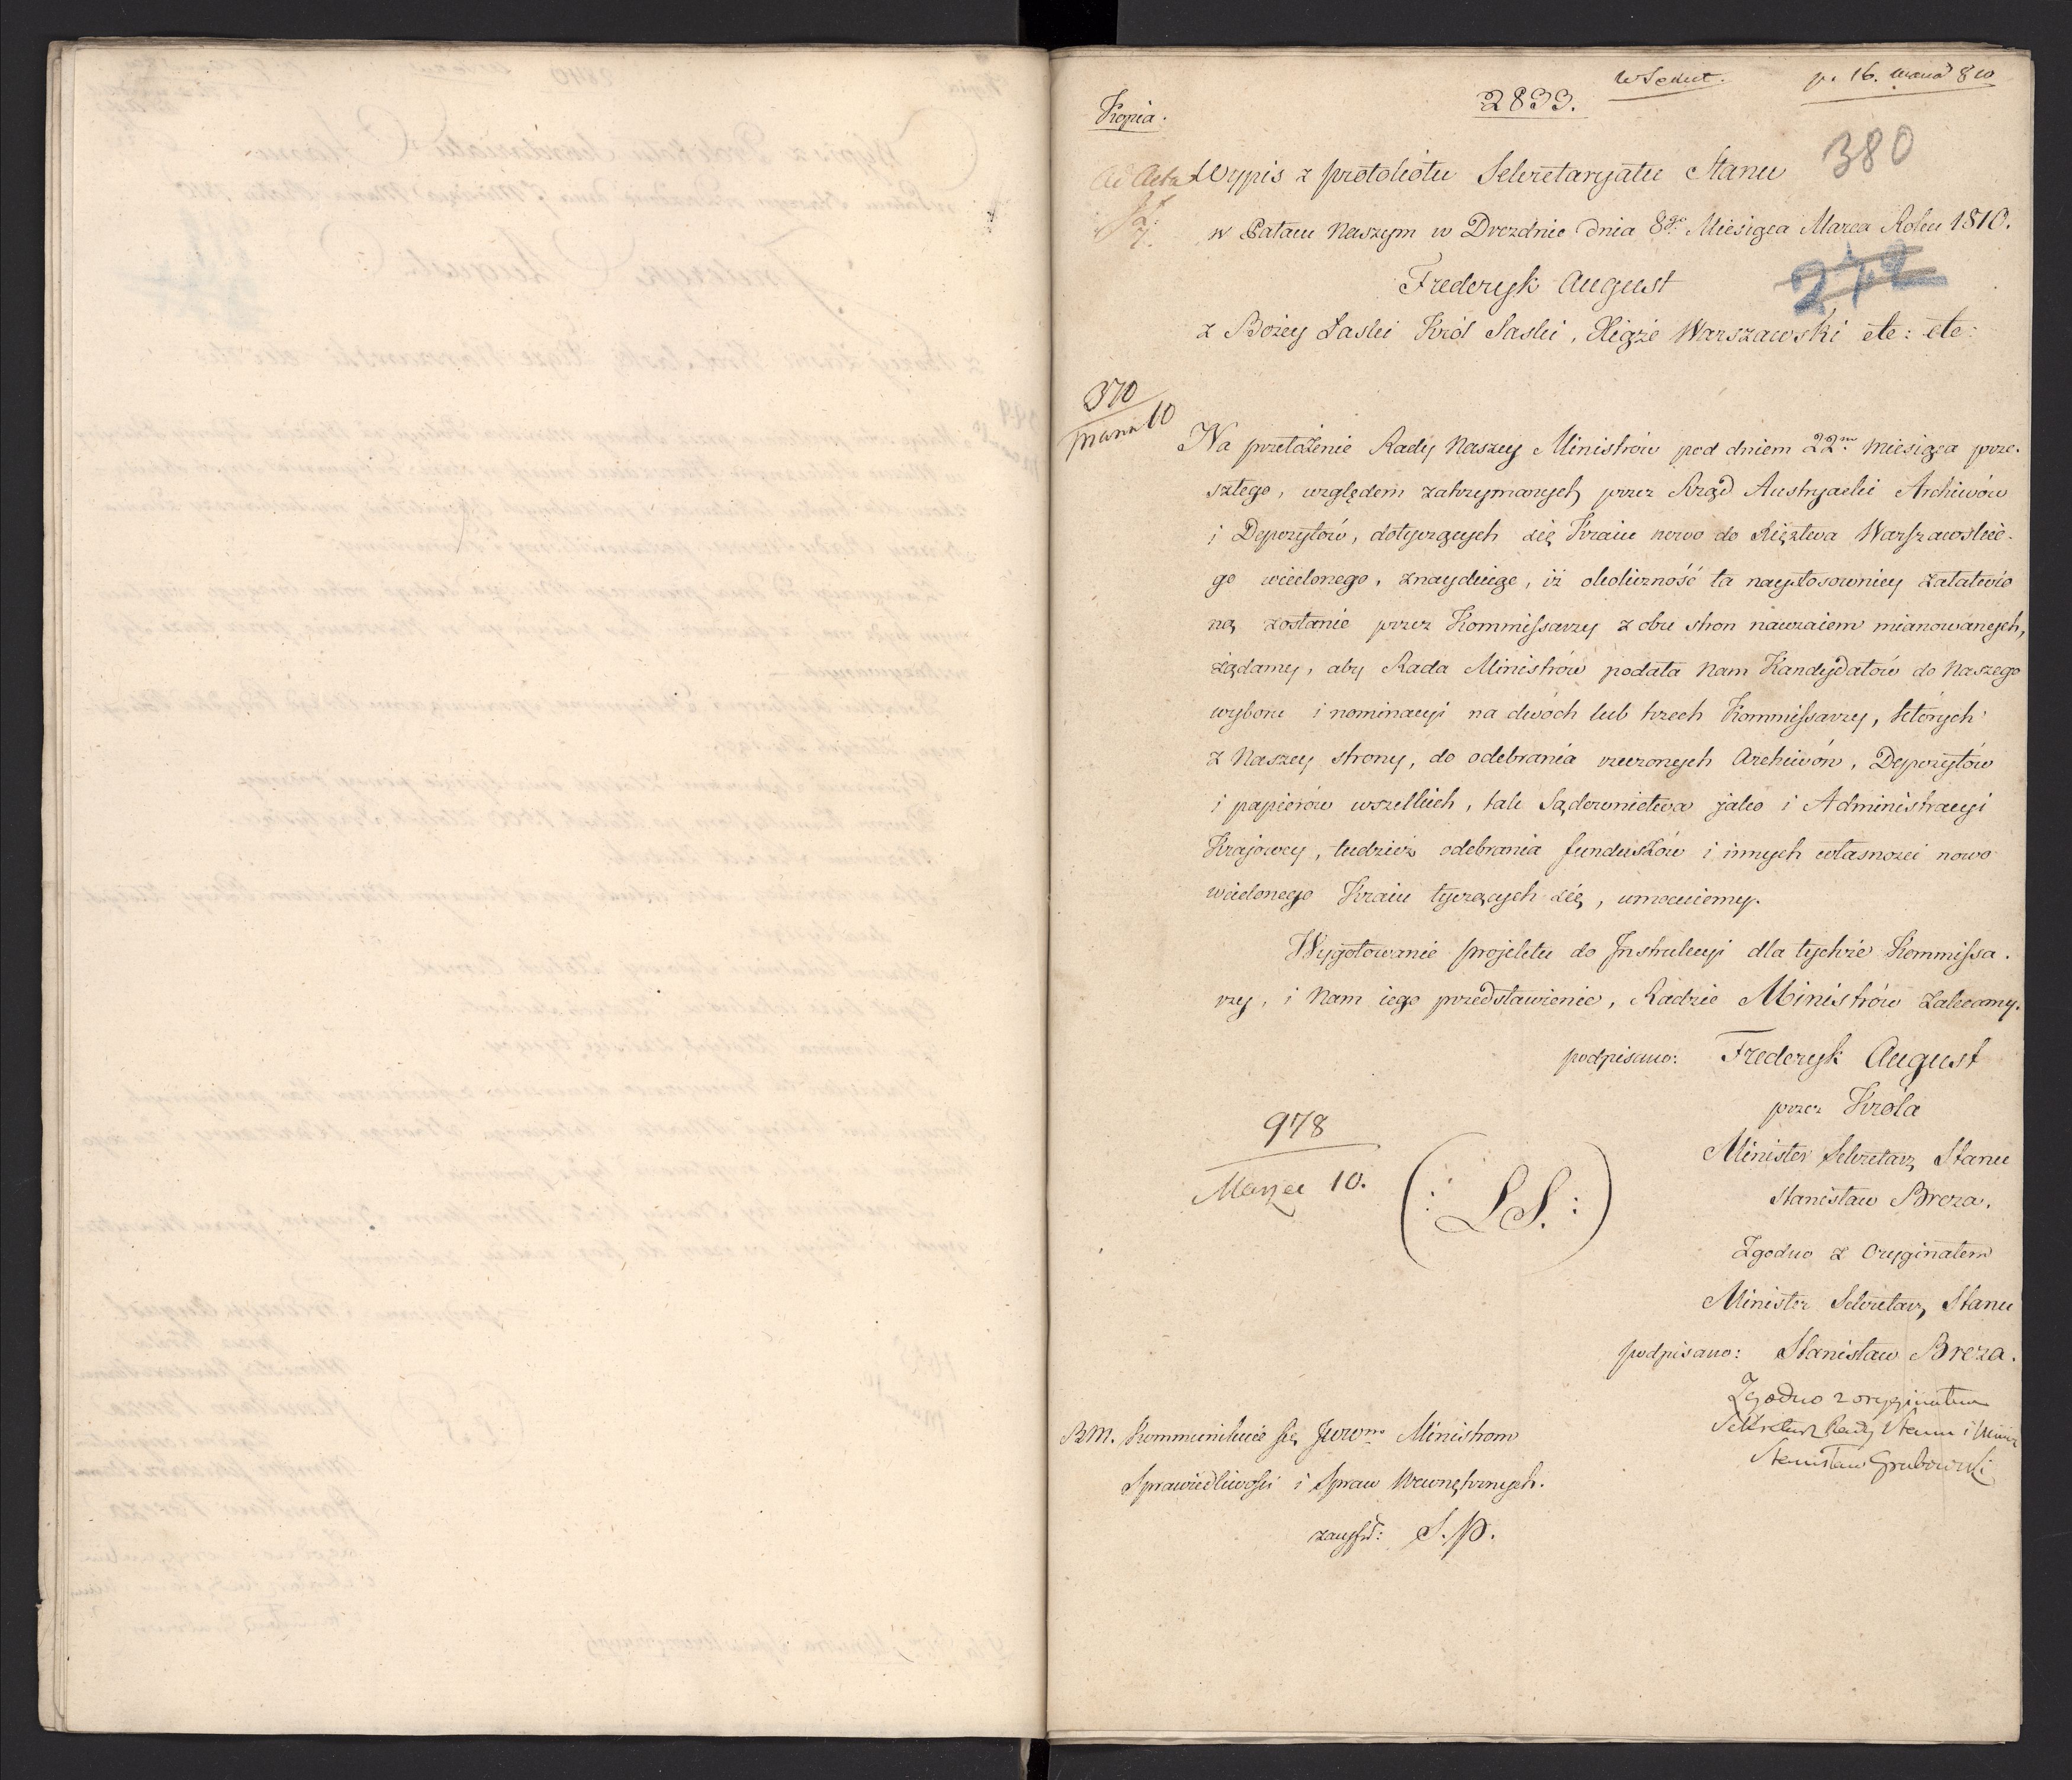 Kopia.
2833.
pr. 16. marca 810
380
Ad Acta
Wypis z protokołu Sekretaryatu Stanu
w Pałacu Naszym w Dreznie dnia 8go Miesiąca Marca Roku 1810.
Frederyk August
242
z Bożey Łaski Król Saski, Xiąże Warszawski etc: etc:
370
marca 10
Na przełożenie Rady Naszey Ministrów pod dniem 22m miesiąca prze-
szłego, względem zatrzymanych przez Rząd Austryacki Archiwów
i Depozytów, dotyczących się Kraiu nowo do Xięztwa Warszawskie-
go wcielonego, znayduiąc, iż okoliczność ta naystosowniey załatwio
ną zostanie przez Kommissarzy z obu stron nawzaiem mianowanych,
żądamy, aby Rada Ministrów podała Nam Kandydatów do Naszego
wyboru i nominacyi na dwóch lub trzech Kommissarzy, których
z Naszey strony, do odebrania rzeczonych Archiwów, Depozytów
i papierów wszelkich, tak Sądownictwa jako i Administracyi
Krajowey, tudzież odebrania funduszów i innych własności nowo
wcielonego Kraiu tyczących się, umocuiemy.
Wygotowanie projektu do Instrukcyi dla tychże Kommissa-
rzy, i Nam iego przedstawienie, Radzie Ministrów zalecamy.
podpisano: Frederyk August
przez Króla
Minister Sekretarz Stanu
Stanisław Breza.
978
Marzec 10.
(: L.S. :)
Zgodno z Oryginałem
Minister Sekretarz Stanu
podpisano: Stanisław Breza.
Zgodno z oryginałem
Sekretarz Rady Stanu i Minis
Stanisław Grabowski
RM. Kommunikuie się Jwwm Ministrom
Sprawiedliwości i Spraw Wewnętrznych.
S. P.